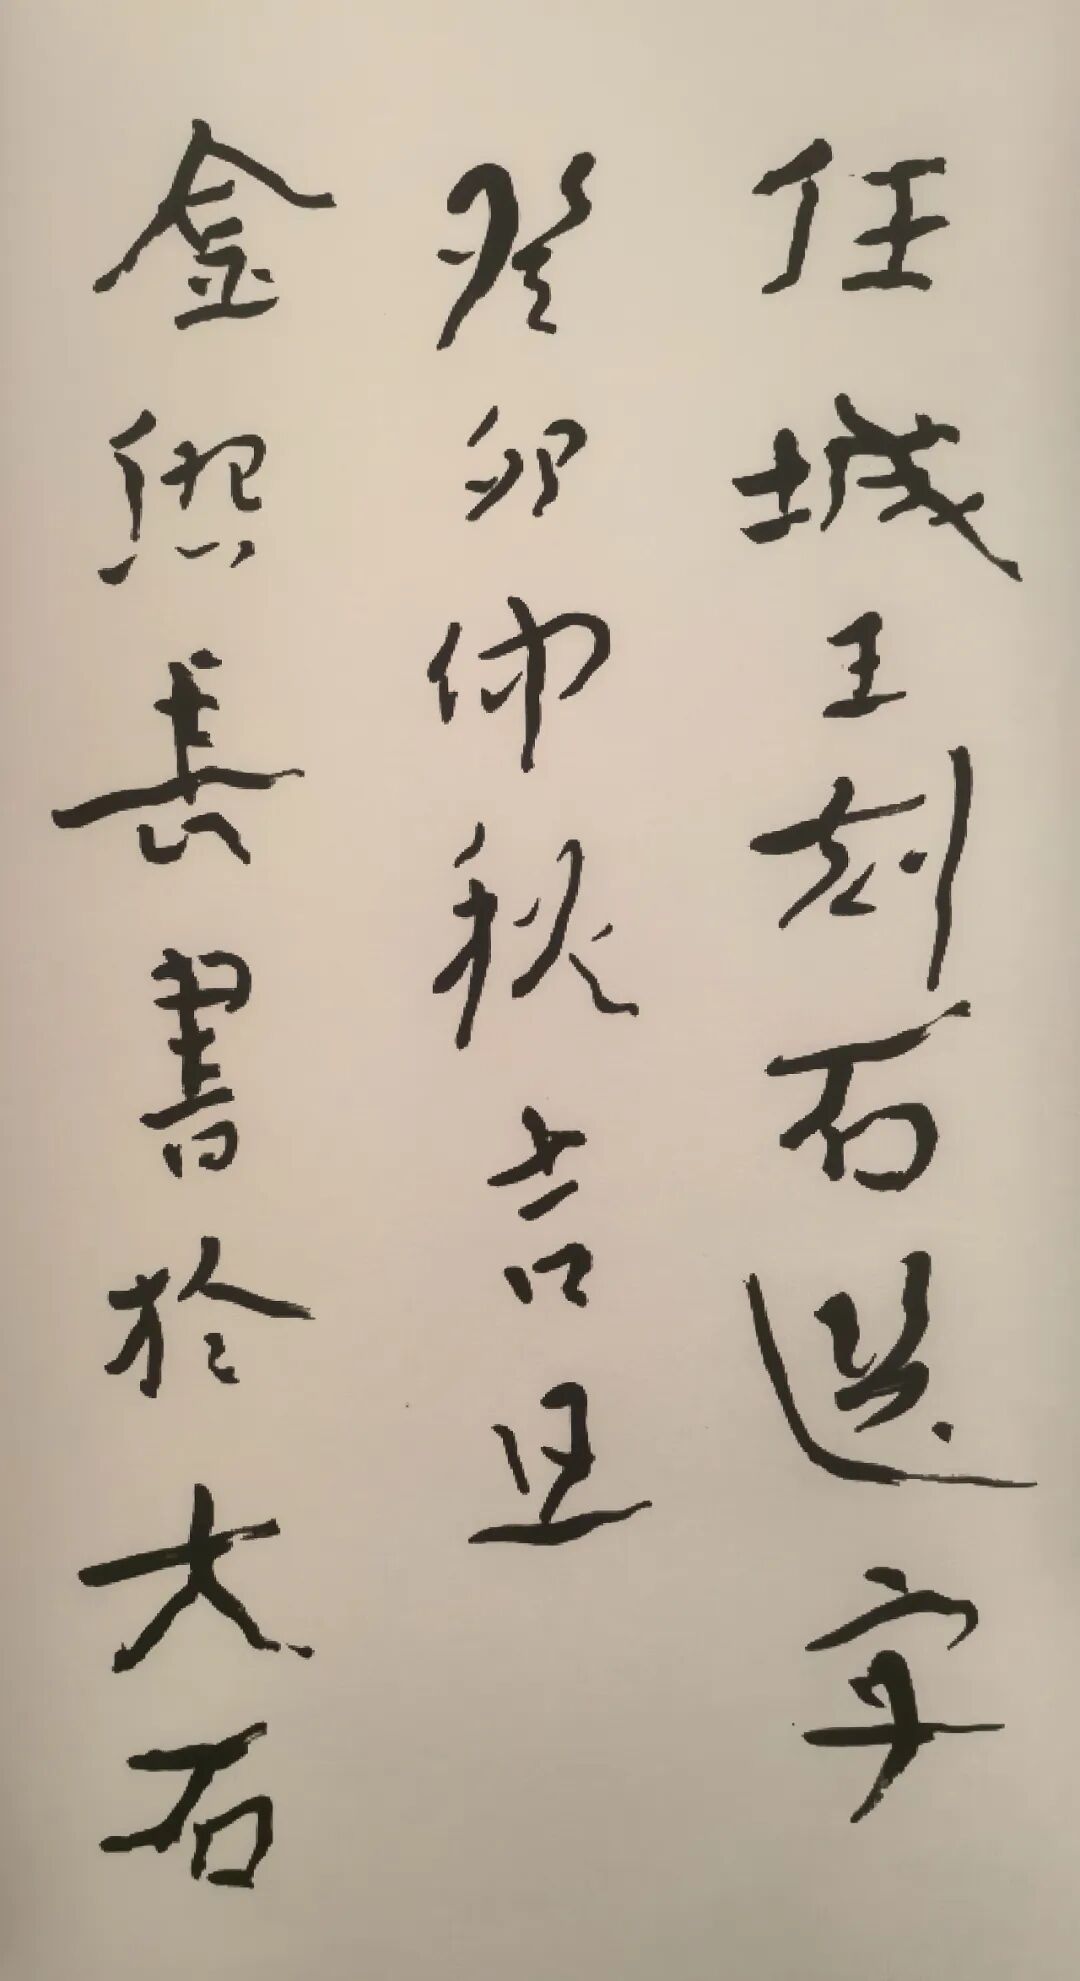 任城王刻石選字
癸卯仲秋吉旦
金熙長書於大石